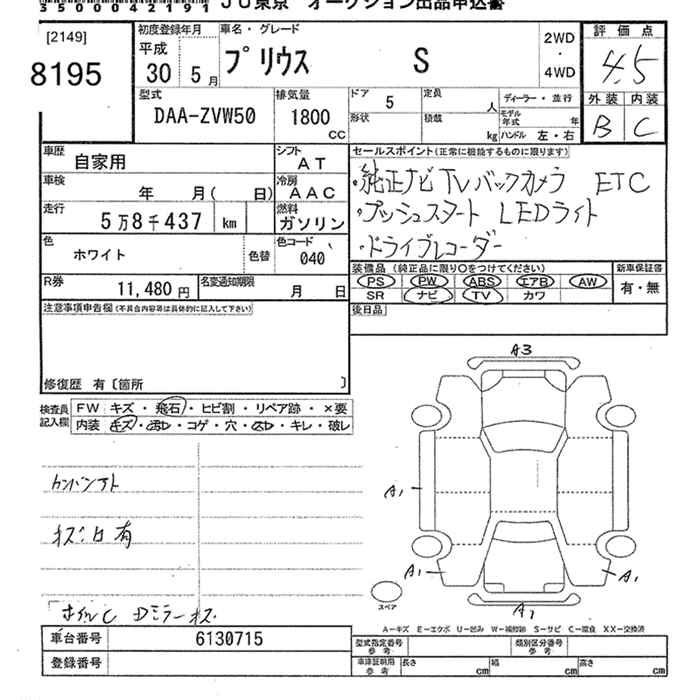 35000421191 JU東京 オークション出品申込書
[2149]
8195
初度登録年月
平成
30 5月
車名・グレード
プリウス S
2WD
・
4WD
評価点
4.5
外装 内装
B C
型式
DAA-ZVW50
排気量
1800
CC
ドア 5
形状
定員 人
積載 kg
ディーラー・並行
モデル年式 年
ハンドル 左・右
車歴
自家用
シフト
AT
車検
年 月( 日)
冷房
AAC
走行
5万8千437 km
燃料
ガソリン
色
ホワイト
色替
色コード
040
R券
11,480円
名変通知期限
月 日
セールスポイント(正常に機能するものに限ります)
・純正ナビ TV バックカメラ ETC
・プッシュスタート LEDライト
・ドライブレコーダー
装備品 (純正品に限り○をつけてください)
PS PW ABS エアB AW
SR ナビ TV カワ
新車保証書
有・無
後日品
注意事項申告欄(不具合内容等は具体的に記入して下さい)
修復歴 有〔箇所 〕
検査員
記入欄
FW キズ・飛石・ヒビ割・リペア跡・×要
内装 キズ・汚レ・コゲ・穴・スレ・キレ・破レ
有
A3
A1
A1
A1
A1
スペア
A―キズ E―エクボ U―凹み W―補修跡 S―サビ C―腐食 XX―交換済
車台番号 6130715
登録番号
型式指定番号
参考
類別区分番号
参考
車庫証明用
参考
長さ cm 幅 cm 高さ cm